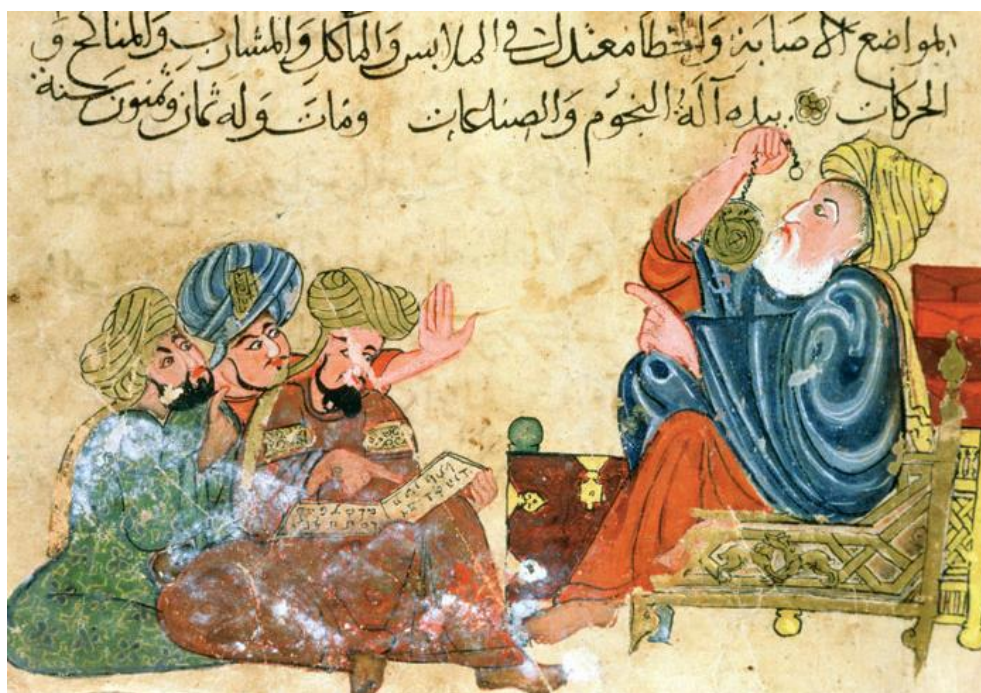 بمواضع الاصابة والخطا معتدل في الملابس والماكل والمشارب والمناكح و
الحركات بيده آلة النجوم والصناعات ومات وله ثمان سنة